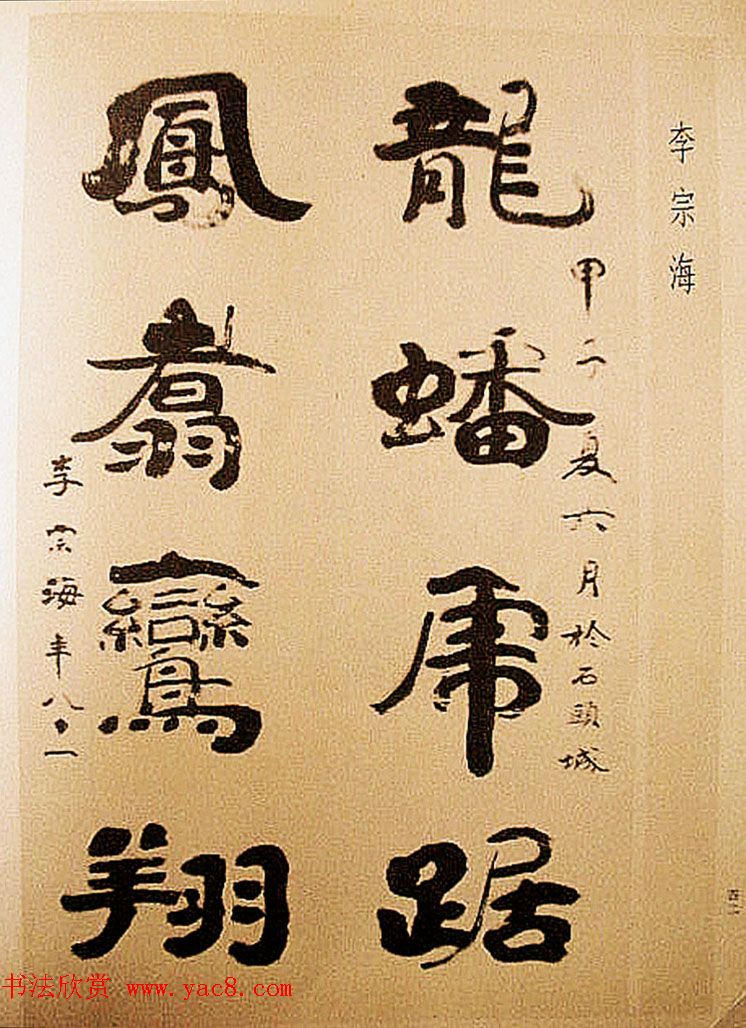 李宗海
甲子夏六月於石頭城
龍蟠虎踞
鳳翥鸞翔
李宗海年八十一
书法欣赏 www.yac8.com